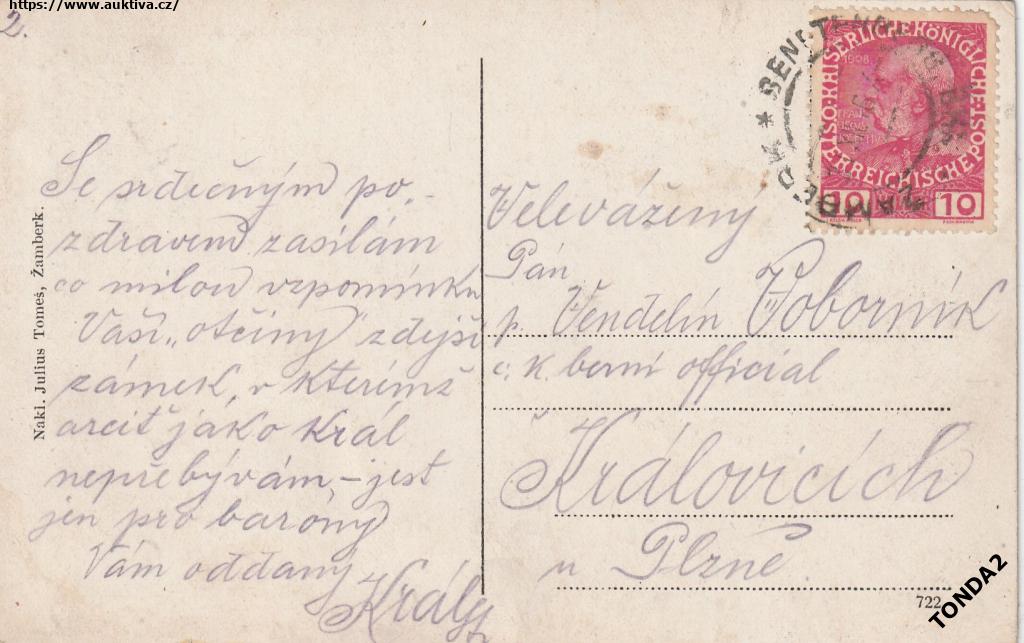 https://www.auktiva.cz/
2.
Se srdečným po-
zdravem zasílám
co milou vzpomínku
Vaší „otčiny" zdejší
zámek, v kterémž
arciť jako král
nepřebývám, – jest
jen pro barony
Vám oddaný
Král
Nakl. Julius Tomeš, Žamberk.
Velevážený
Pán
p. Vendelín Poborník
c. k. berní official
v Královicích
u Plzně.
722
TONDA2
KAISERLICHE KÖNIGLICHE
ÖSTERREICHISCHE POST
1908
10 10